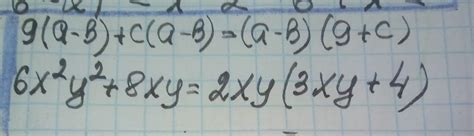 9(a-b)+c(a-b)=(a-b)(9+c)
6x²y²+8xy=2xy(3xy+4)